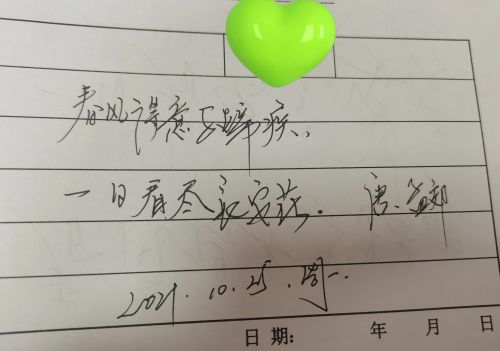 春风得意马蹄疾、
一日看尽长安花. 唐.孟郊
2021.10.25.周一.
日期: 年 月 日